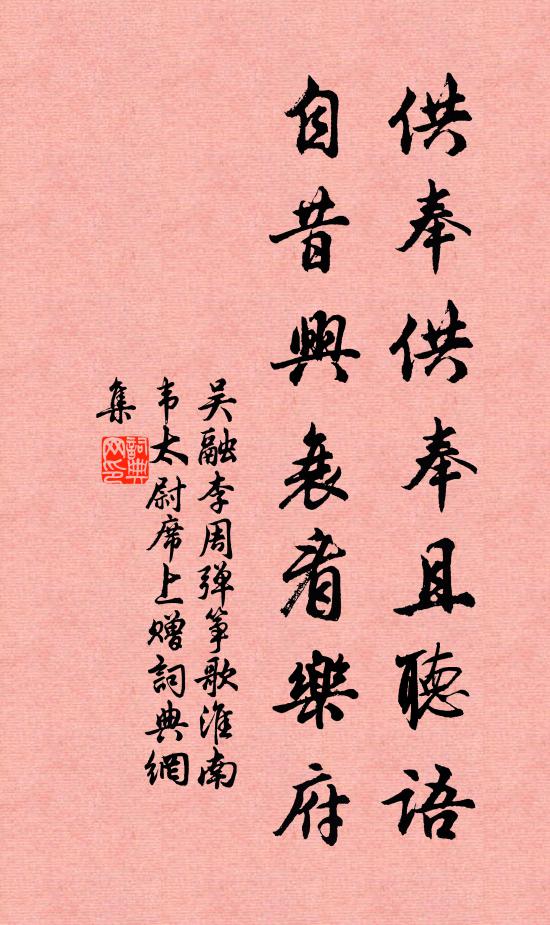 供奉供奉且聽語
自昔興衰看樂府
吴融李周弹筝歌淮南
韦太尉席上赠詞典網
集
詞典網印